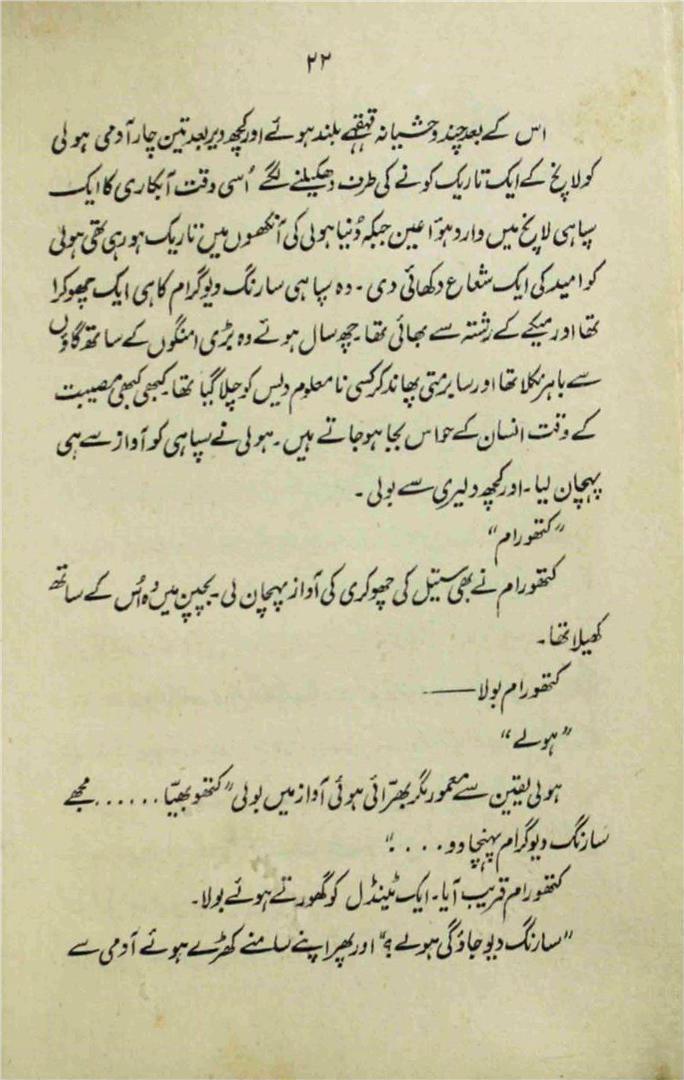 ۲۲
اس کے بعد چند وحشیانہ قہقہے بلند ہوئے اور کچھ دیر بعد تین چار آدمی ہولی
کو لانچ کے ایک تاریک کونے کی طرف دھکیلنے لگے اُسی وقت آبکاری کا ایک
سپاہی لانچ میں وارد ہوٗا عین جبکہ دُنیا ہولی کی آنکھوں میں تاریک ہو رہی تھی ہولی
کو امید کی ایک شعاع دکھائی دی۔ وہ سپاہی سارنگ دیو گرام کا ہی ایک چھوکرا
تھا اور میکے کے رشتہ سے بھائی تھا۔ چھ سال ہوئے وہ بڑی امنگوں کے ساتھ گاؤں
سے باہر نکلا تھا اور سابرمتی پھاند کر کسی نامعلوم دیس کو چلا گیا تھا۔ کبھی کبھی مصیبت
کے وقت انسان کے حواس بجا ہو جاتے ہیں۔ ہولی نے سپاہی کو آواز سے ہی
پہچان لیا۔ اور کچھ دلیری سے بولی۔
”کتھورام“
کتھورام نے بھی سیتل کی چھوکری کی آواز پہچان لی۔ بچپن میں وُہ اُس کے ساتھ
کھیلا تھا۔
کتھورام بولا ——
”ہولے“
ہولی یقین سے معمور مگر بھرّائی ہوئی آواز میں بولی ”کتھو بھیّا ...... مجھے
سارنگ دیو گرام پہنچا دو ....“
کتھورام قریب آیا۔ ایک ٹینڈل کو گھورتے ہوئے بولا۔
”سارنگ دیو جاؤ گی ہولے؟“ اور پھر اپنے سامنے کھڑے ہوئے آدمی سے